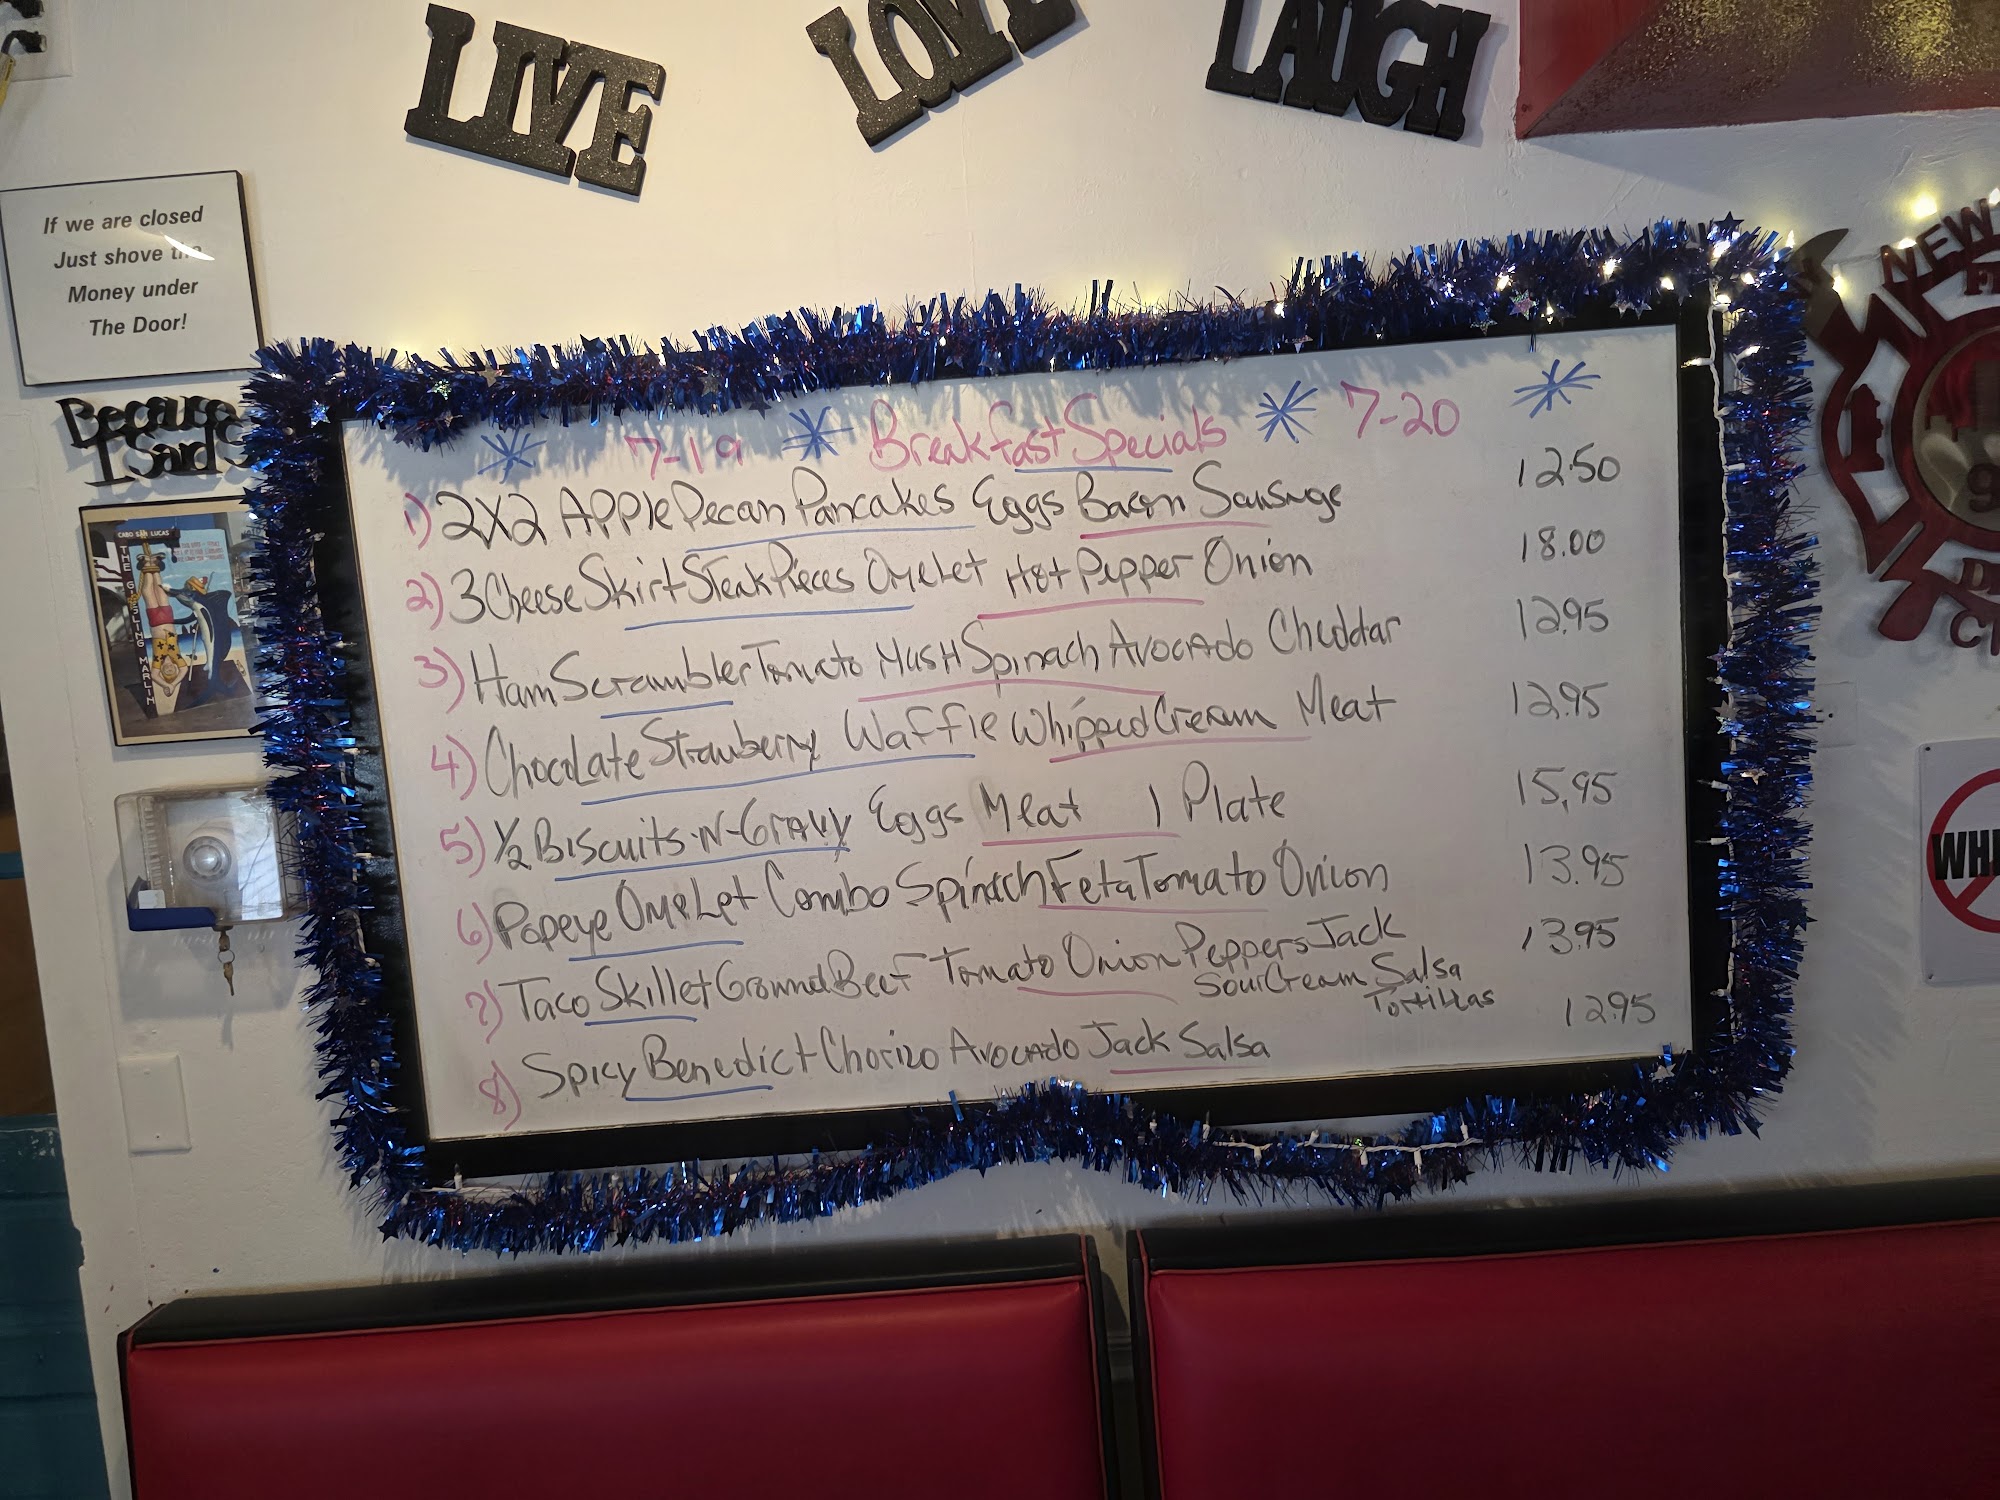 LIVE
LOVE
LAUGH
If we are closed
Just shove the
Money under
The Door!
Because
I Said So
CABO SAN LUCAS
THE GIESLING MARLIN
7-19 Breakfast Specials 7-20
1) 2X2 Apple Pecan Pancakes Eggs Bacon Sausage 12.50
2) 3 Cheese Skirt Steak Pieces Omelet Hot Pepper Onion 18.00
3) Ham Scrambler Tomato Mush Spinach Avocado Cheddar 12.95
4) Chocolate Strawberry Waffle Whipped Cream Meat 12.95
5) 1/2 Biscuits-N-Gravy Eggs Meat 1 Plate 15.95
6) Popeye Omelet Combo Spinach Feta Tomato Onion 13.95
7) Taco Skillet Ground Beef Tomato Onion Peppers Jack 13.95
Sour Cream Salsa
Tortillas
8) Spicy Benedict Chorizo Avocado Jack Salsa 12.95
NEW